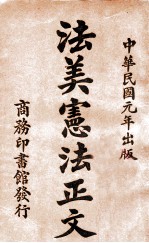 中華民國元年出版
法美憲法正文
商務印書館發行